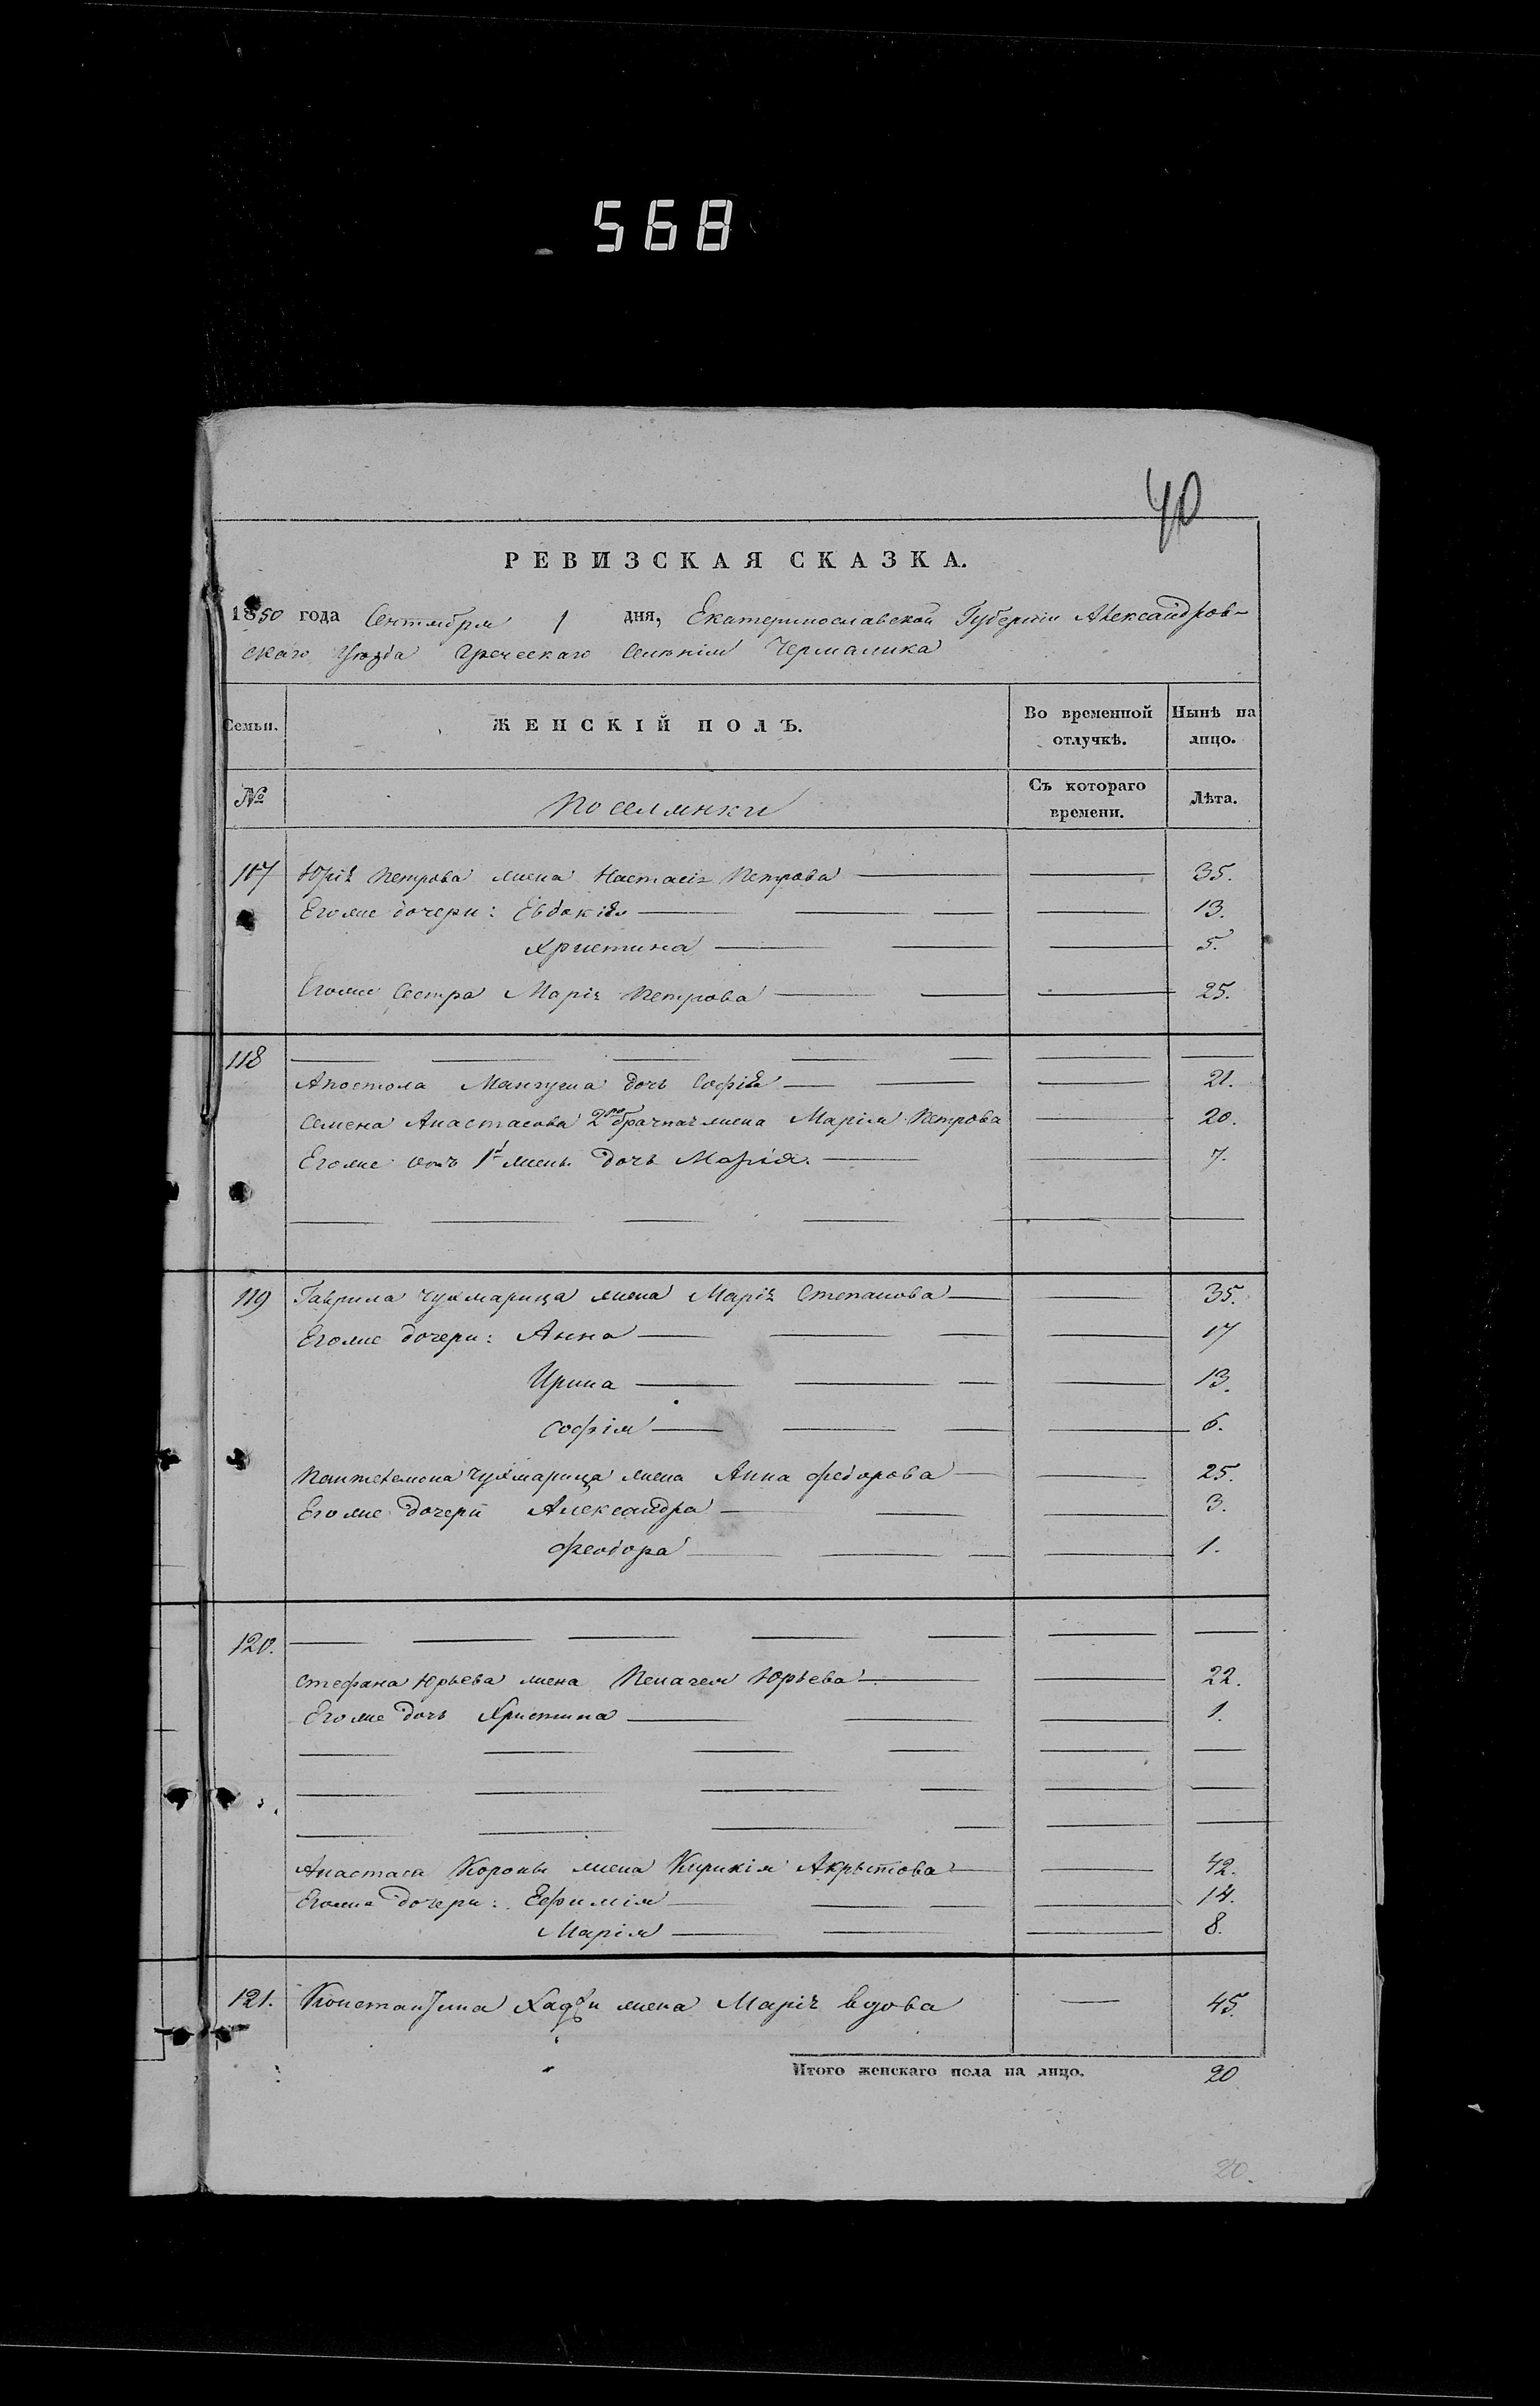 568
40
РЕВИЗСКАЯ СКАЗКА.
1850 года Сентября 1 дня, Екатеринославской Губерніи Александров-
скаго Уѣзда Греческаго Селенія Чермалика
Семьи. ЖЕНСКІЙ ПОЛЪ. Во временной отлучкѣ. Нынѣ на лицо.
№ Поселянки Съ котораго времени. Лѣта.
117 Юрія Петрова жена Настасія Петрова 35.
Егоже дочери: Евдокія 13.
Христина 5.
Егоже Сестра Марія Петрова 25.
118
Апостола Мангуша дочь Софія 21.
Семена Анастасова 2но брачная жена Марія Петрова 20.
Егоже отъ 1й жены дочь Марія. 7.
119 Гаврила Чукмарица жена Марія Степанова 35.
Егоже дочери: Анна 17
Ирина 13.
Софія 6.
Пантелемона Чукмарица жена Анна Федорова 25.
Егоже дочери Александра 3.
Феодора 1.
120.
Стефана Юрьева жена Юрьева 22.
Егоже дочь Христина 1.
Анастаса Короны жена Кирикія 42.
Егоже дочери: Ефимія 14.
Марія 8.
121. Константина Хаджи жена Марія вдова 45.
Итого женскаго пола на лицо. 20
20.